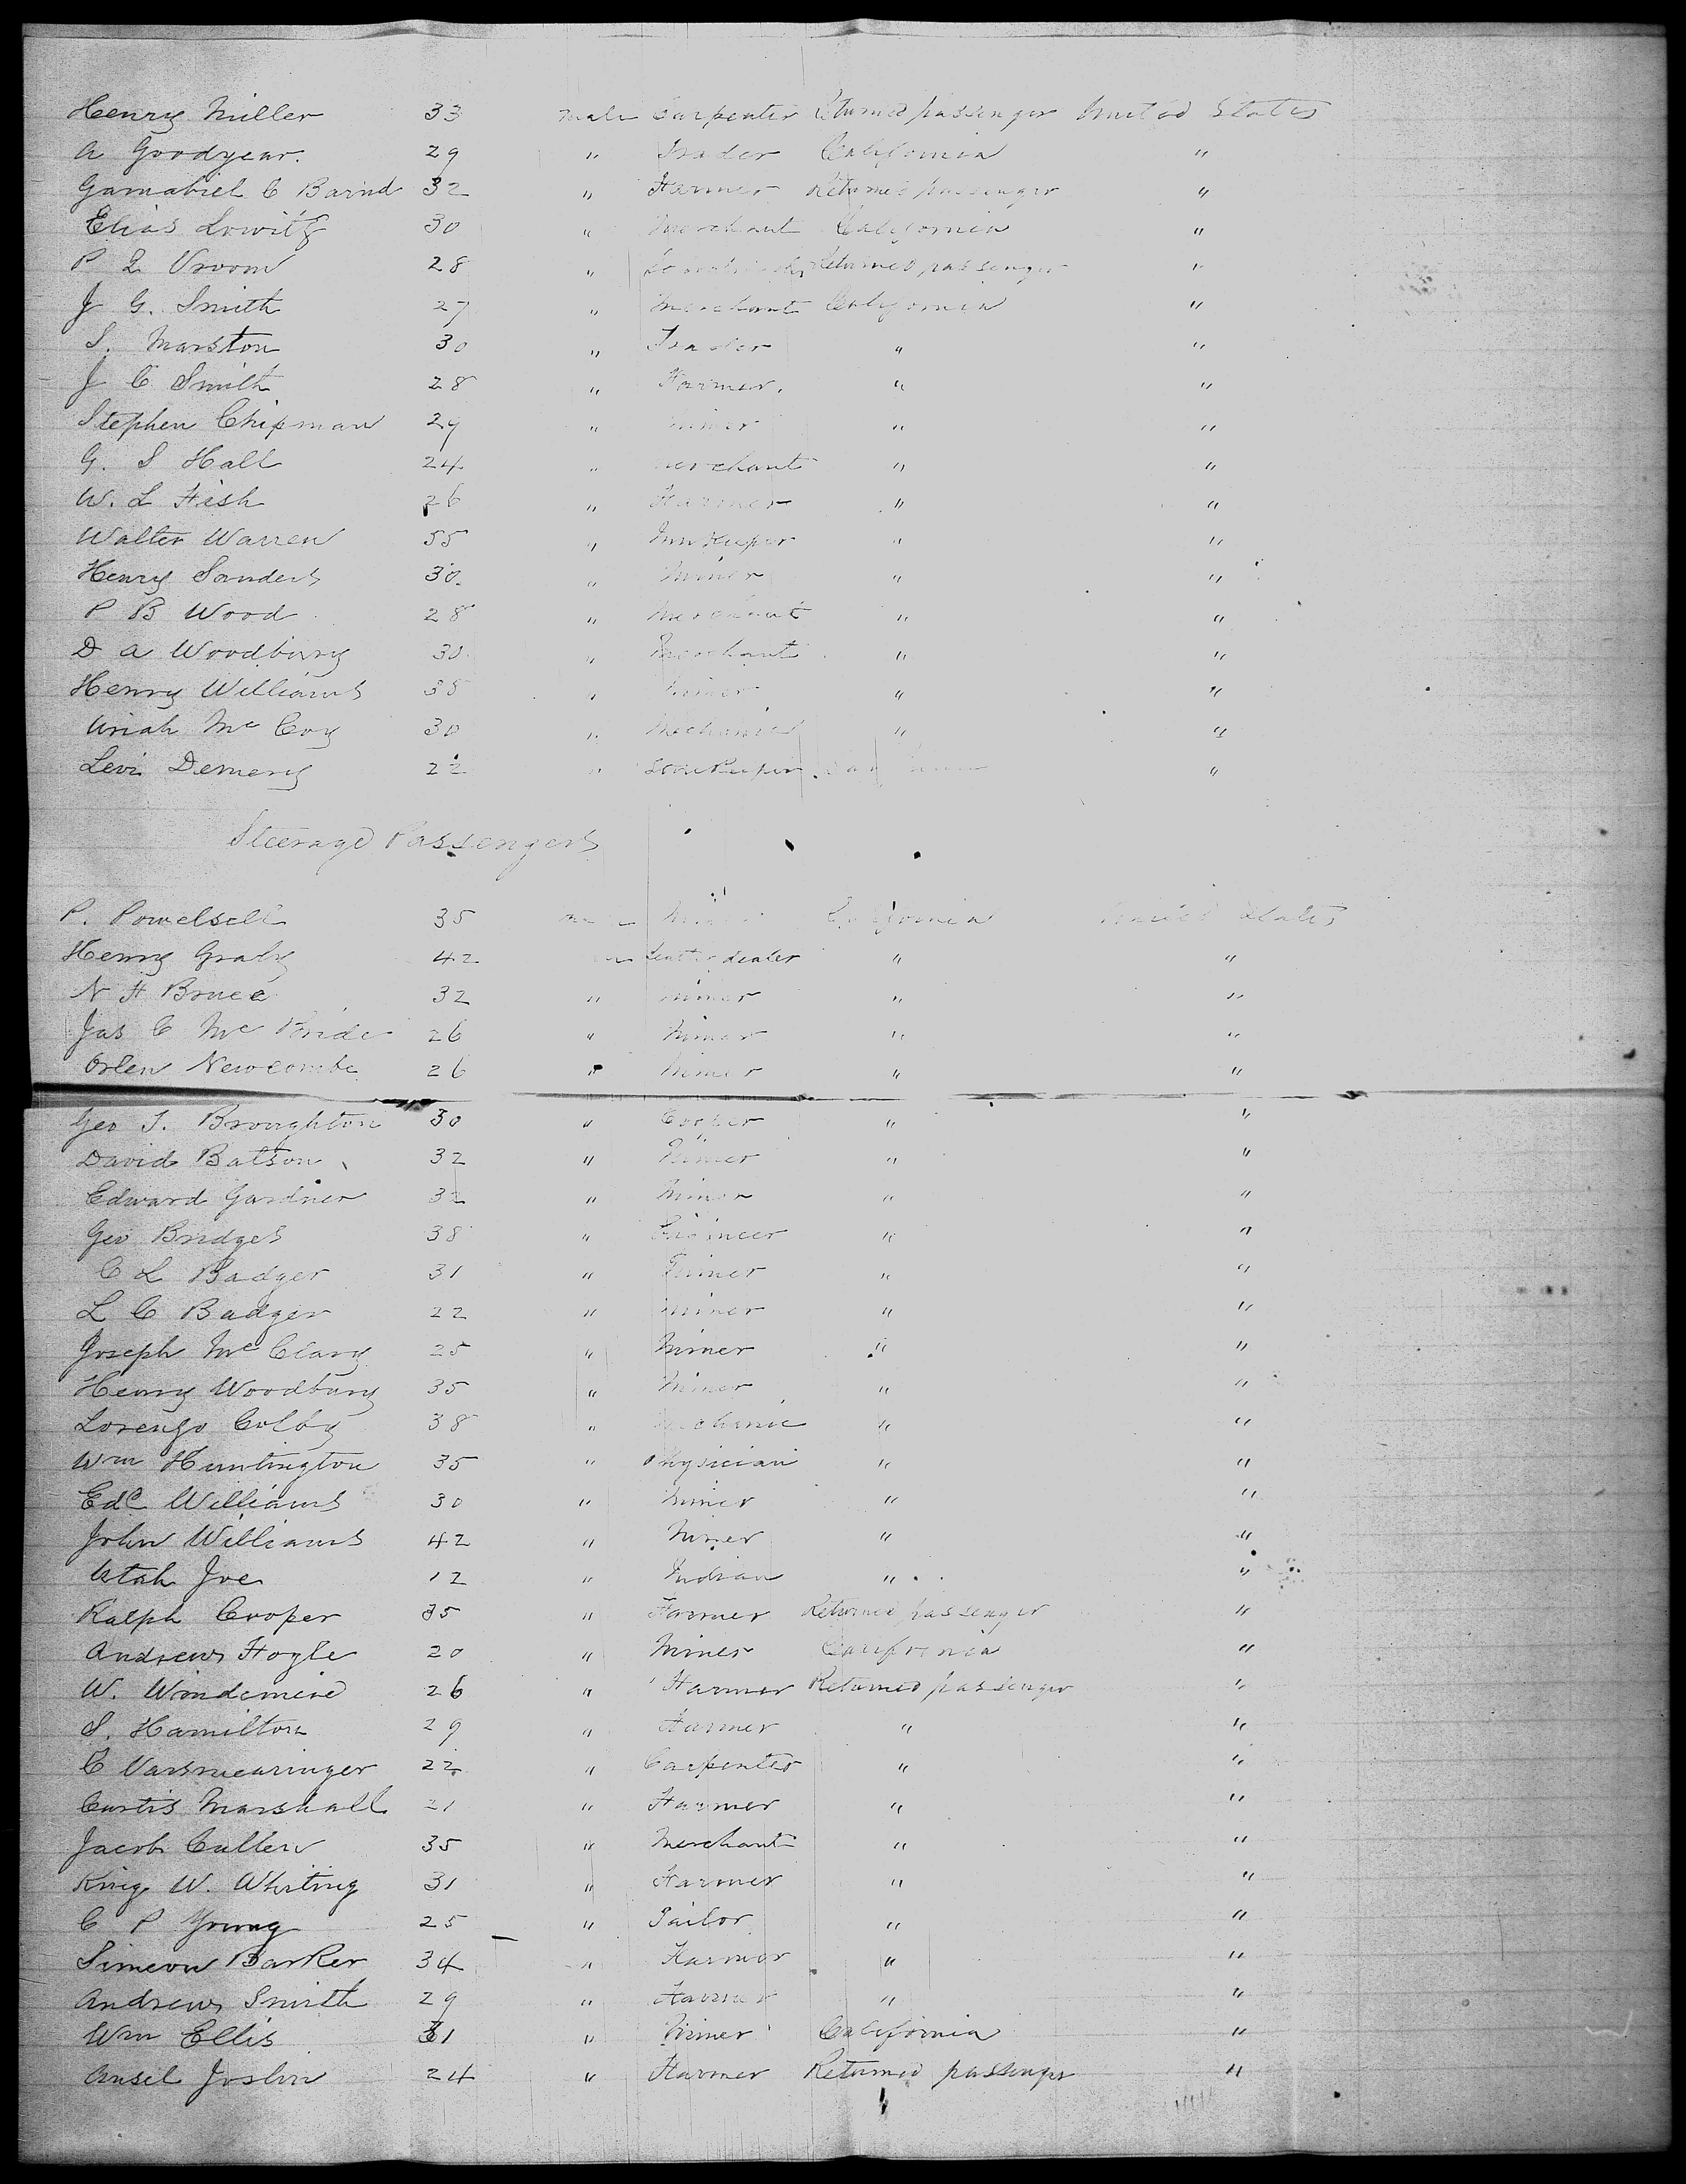 Henry Miller 33 male Carpenter Returned passenger United States
A Goodyear. 29 " Trader California "
Gamabiel C Barnd 32 " Farmer Returned passenger "
Elias Lowitz 30 " Merchant California "
P Q Vroom 28 " Returned passenger "
J G. Smith 27 " Merchant California "
S. Marston 30 " Trader " "
J C Smith 28 " Farmer. " "
Stephen Chipman 29 " Miner " "
G. S Hall 24 " Merchant " "
W. L Fish 26 " Farmer " "
Walter Warren 55 " Inn Keeper " "
Henry Sanders 30. " Miner " "
P B Wood 28 " Merchant " "
D A Woodbury 30 " Merchant " "
Henry Williams 35 " Miner " "
Uriah Mc Coy 30 " Mechanic " "
Levi Demery 22 " Store Keeper "
Steerage Passengers
P. Powelsell 35 California United States
Henry Graly 42 dealer " "
N F Bruce 32 " Miner " "
Jas C Mc Bride 26 " Miner " "
Orlen Newcombe 26 " Miner " "
Geo T. Broughton 30 " Cooper " "
David Batson 32 " Miner " "
Edward Gardner 32 " Miner " "
Geo Bridges 38 " Engineer " "
C L Badger 31 " Miner " "
L C Badger 22 " Miner " "
Joseph Mc Clary 25 " Miner " "
Henry Woodbury 35 " Miner " "
Lorenzo Colby 38 " Mechanic " "
Wm Huntington 35 " Physician " "
Ed Williams 30 " Miner " "
John Williams 42 " Miner " "
Utah Joe 12 " Indian " "
Ralph Cooper 35 " Farmer Returned passenger "
Andrew Hogle 20 " Miner California "
W. Windemire 26 " Farmer Returned passenger "
S. Hamilton 29 " Farmer " "
C Vansmearinger 22 " Carpenter " "
Curtis Marshall 21 " Farmer " "
Jacob Cullen 35 " Merchant " "
King W. Whiting 31 " Farmer " "
C P Young 25 " Tailor " "
Simeon Barker 34 " Farmer " "
Andrew Smith 29 " Farmer " "
Wm Ellis 31 " Miner California "
Ansel Joslin 24 " Farmer Returned passenger "